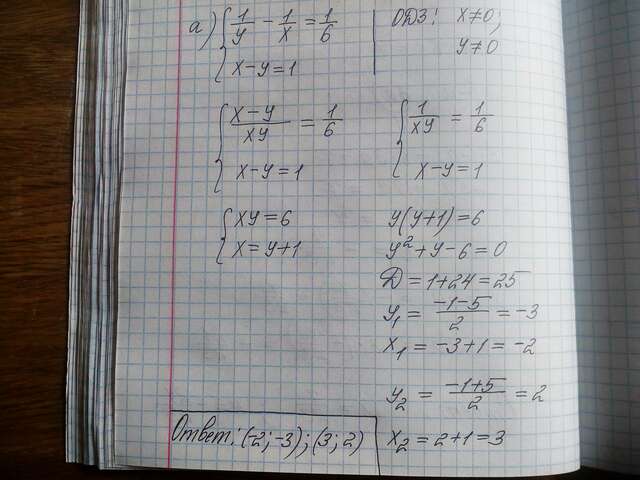 а) { 1/y - 1/x = 1/6
x - y = 1
ОДЗ: x ≠ 0;
y ≠ 0
{ (x - y)/(xy) = 1/6
x - y = 1
{ 1/(xy) = 1/6
x - y = 1
{ xy = 6
x = y + 1
y(y+1) = 6
y² + y - 6 = 0
D = 1 + 24 = 25
y₁ = (-1-5)/2 = -3
x₁ = -3 + 1 = -2
y₂ = (-1+5)/2 = 2
x₂ = 2 + 1 = 3
Ответ: (-2; -3); (3; 2)